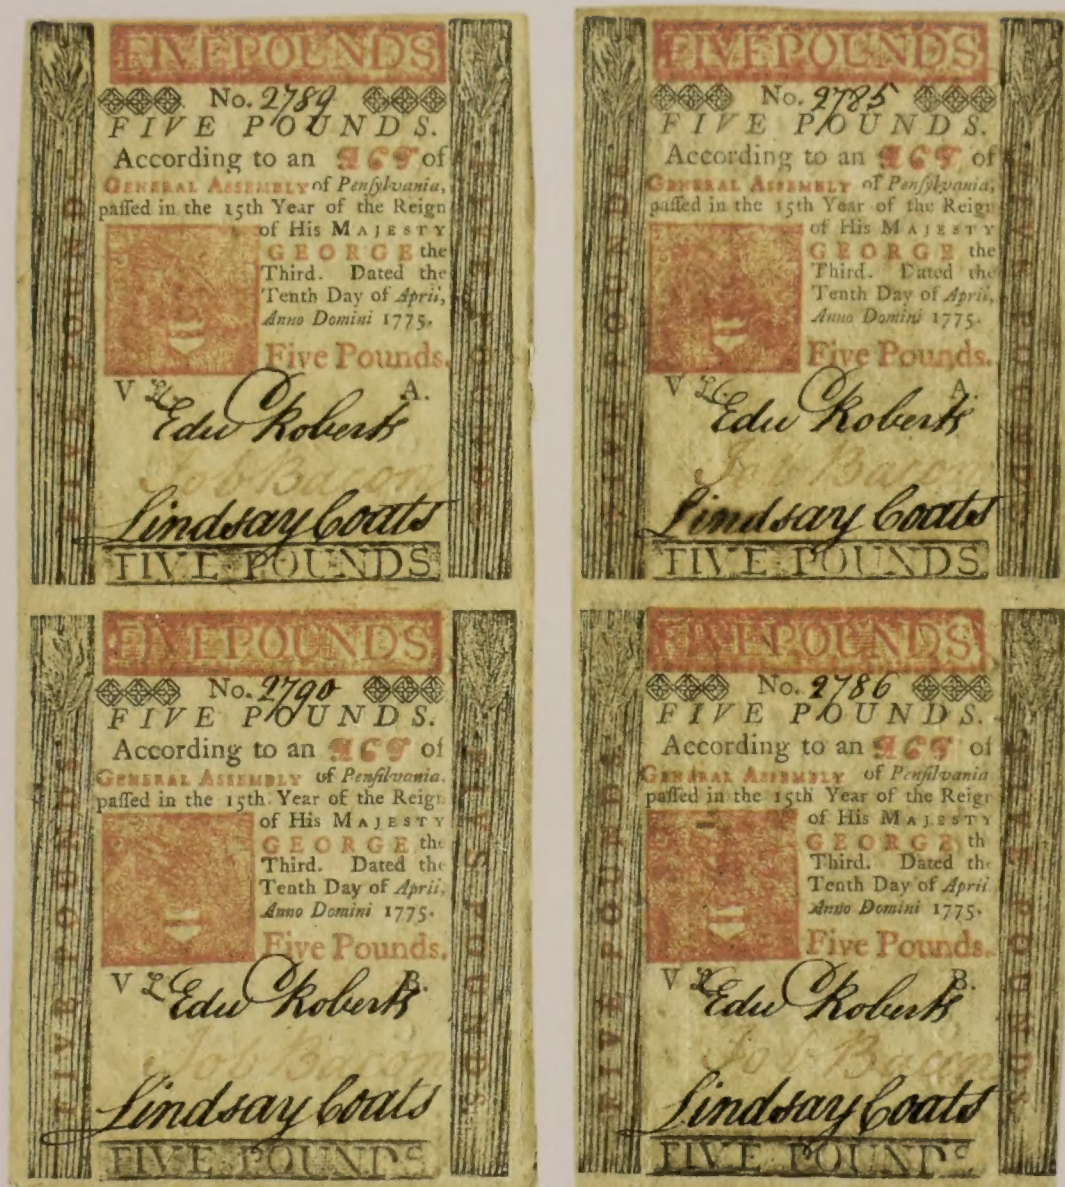 FIVE POUNDS
No. 2789
FIVE POUNDS.
According to an ACT of
GENERAL ASSEMBLY of Penſylvania,
paſſed in the 15th Year of the Reign
of His MAJESTY
GEORGE the
Third. Dated the
Tenth Day of April,
Anno Domini 1775.
Five Pounds.
V £. A.
Edw Roberts
Job Bacon
Lindsay Coats
FIVE POUNDS
FIVE POUNDS
FIVE POUNDS
FIVE POUNDS
No. 2785
FIVE POUNDS.
According to an ACT of
GENERAL ASSEMBLY of Penſylvania,
paſſed in the 15th Year of the Reign
of His MAJESTY
GEORGE the
Third. Dated the
Tenth Day of April,
Anno Domini 1775.
Five Pounds.
V £. A.
Edw Roberts
Job Bacon
Lindsay Coats
FIVE POUNDS
FIVE POUNDS
FIVE POUNDS
FIVE POUNDS
No. 2790
FIVE POUNDS.
According to an ACT of
GENERAL ASSEMBLY of Penſilvania.
paſſed in the 15th Year of the Reign
of His MAJESTY
GEORGE the
Third. Dated the
Tenth Day of April,
Anno Domini 1775.
Five Pounds.
V £ B.
Edw Roberts
Job Bacon
Lindsay Coats
FIVE POUNDS
FIVE POUNDS
FIVE POUNDS
FIVE POUNDS
No. 2786
FIVE POUNDS.
According to an ACT of
GENERAL ASSEMBLY of Penſilvania
paſſed in the 15th Year of the Reign
of His MAJESTY
GEORGE th
Third. Dated the
Tenth Day of April
Anno Domini 1775.
Five Pounds.
V £ B.
Edw Roberts
Job Bacon
Lindsay Coats
FIVE POUNDS
FIVE POUNDS
FIVE POUNDS